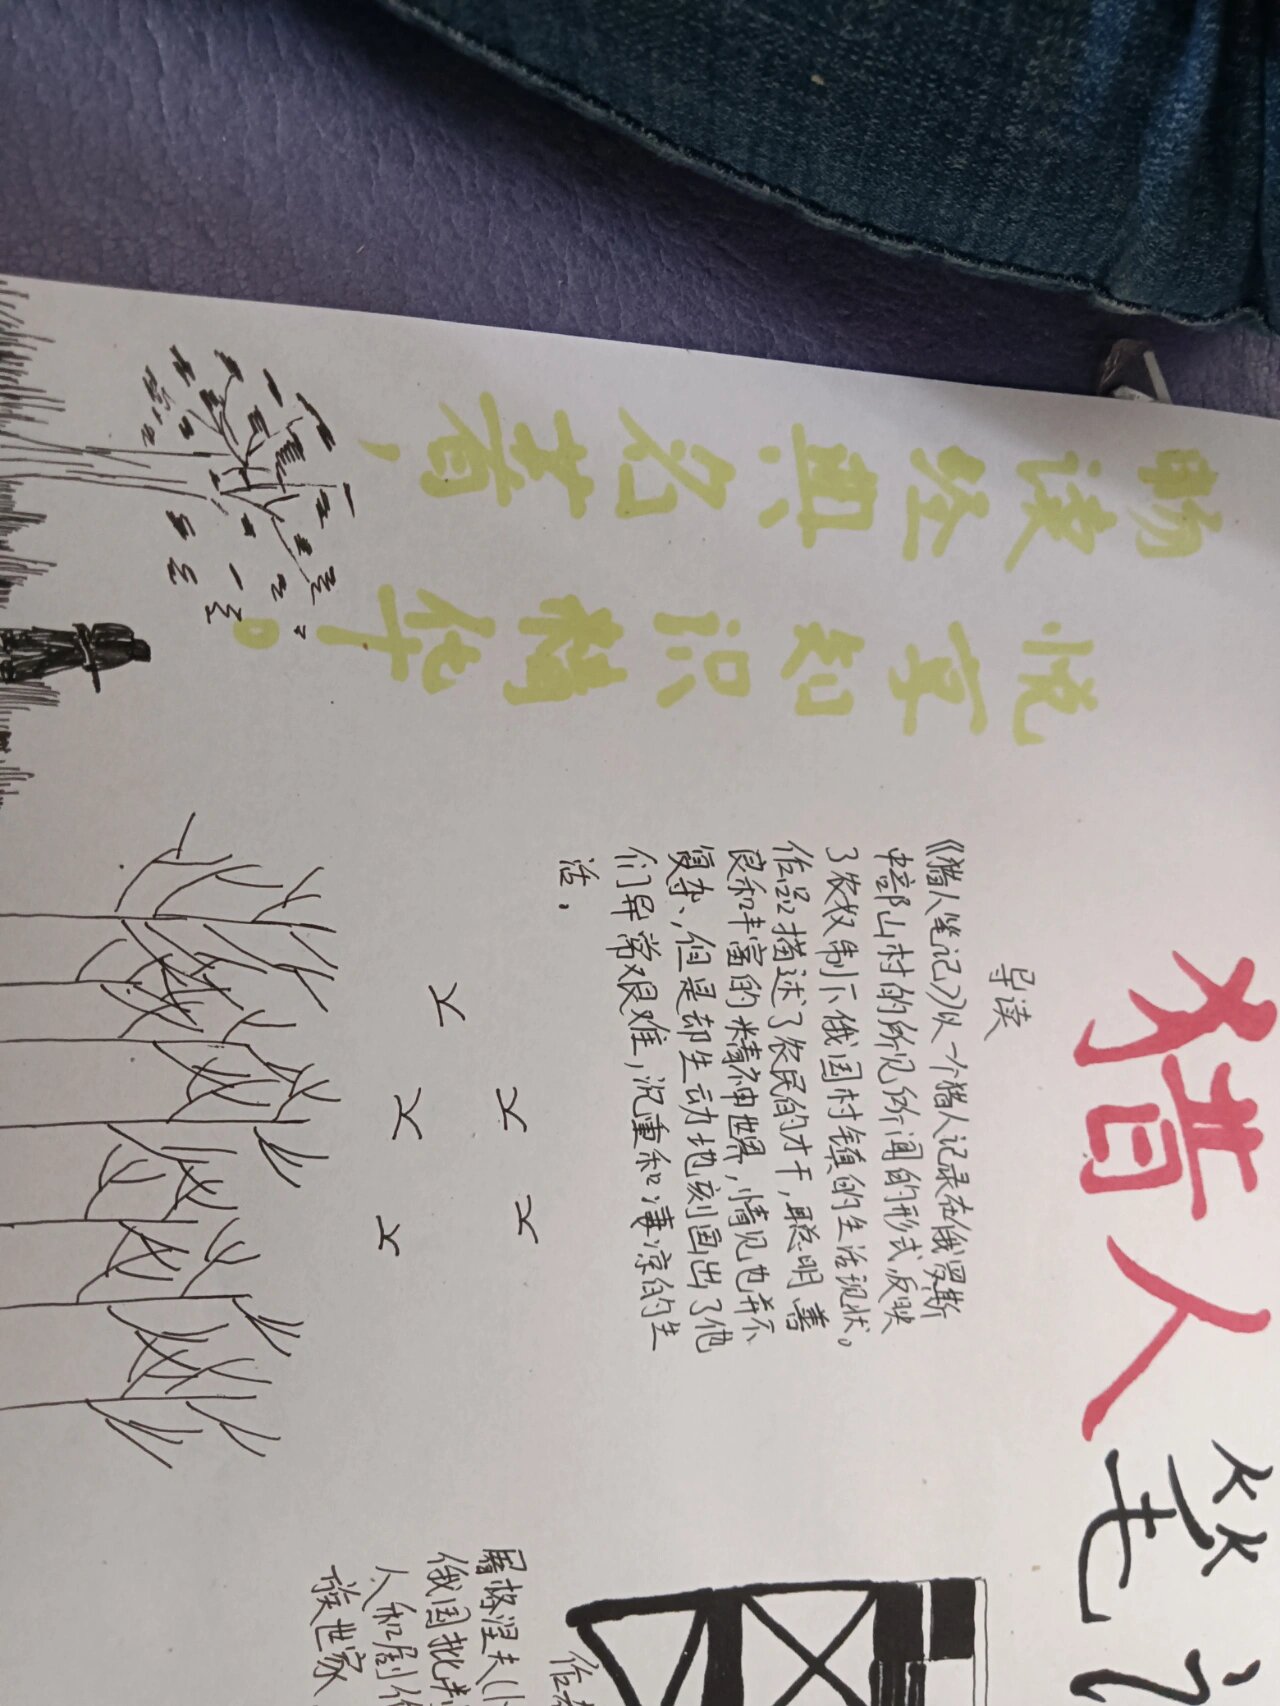 猎人笔
畅读经典名著，
悦享知识精华。
导读
《猎人笔记》以一个猎人记录在俄罗斯
中部山村的所见所闻的形式反映
了农权制下俄国村镇的生活现状。
作品描述了农民的才干，聪明善
良和丰富的精神世界，情况也并不
复杂，但是却生动地刻画出了他
们异常艰难，沉重和凄凉的生
活，
屠格涅夫(
俄国批判
人和剧作
族世家